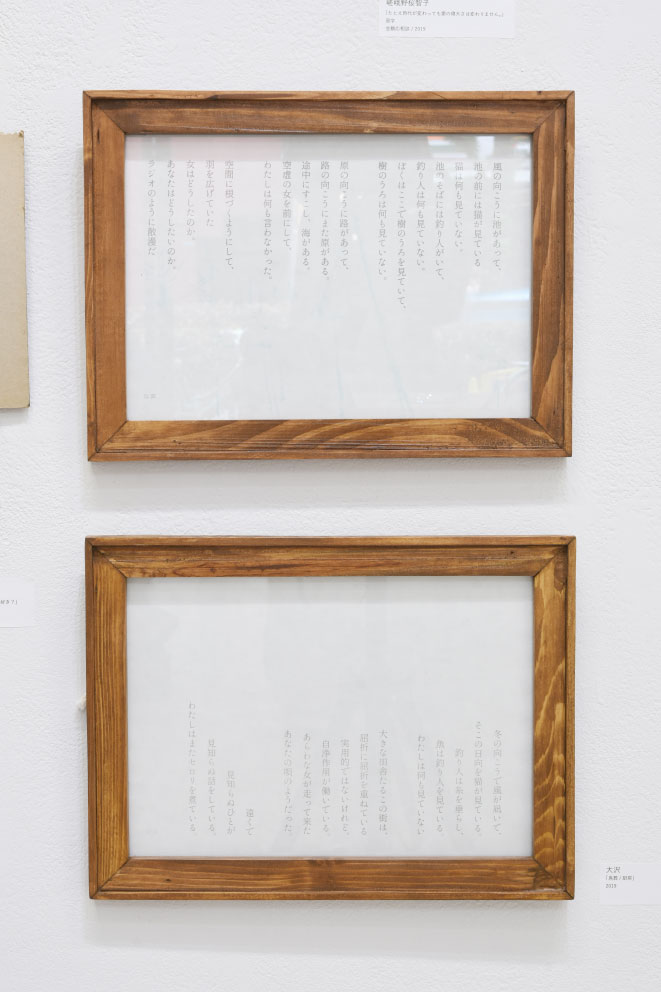 「たとえ時代が変わっても憲の構え方は変わりません。」
2019
風の向こうに池があって、
池の前には猫が見ている
猫は何も見ていない。
池のそばには釣り人がいて、
釣り人は何も見ていない。
ぼくはここで樹のうろを見ていて、
樹のうろは何も見ていない。
原の向こうに路があって、
路の向こうにまた原がある。
途中にすこし、海がある。
空虚の女を前にして、
わたしは何も言わなかった。
空間に根づくようにして、
羽を広げていた
女はどうしたのか、
あなたはどうしたいのか。
ラジオのように散漫だ
冬の向こうで風が凪いで、
そこの日向を猫が見ている。
釣り人は糸を垂らし、
魚は釣り人を見ている。
わたしは何も見ていない
大きな田舎たるこの街は、
屈折に屈折を重ねている
実用的ではないけれど、
自浄作用が働いている。
あらわな女が走って来た
あなたの唄のようだった。
遠くで
見知らぬひとが
見知らぬ話をしている。
わたしはまたセロリを煮ている。
大沢
2019